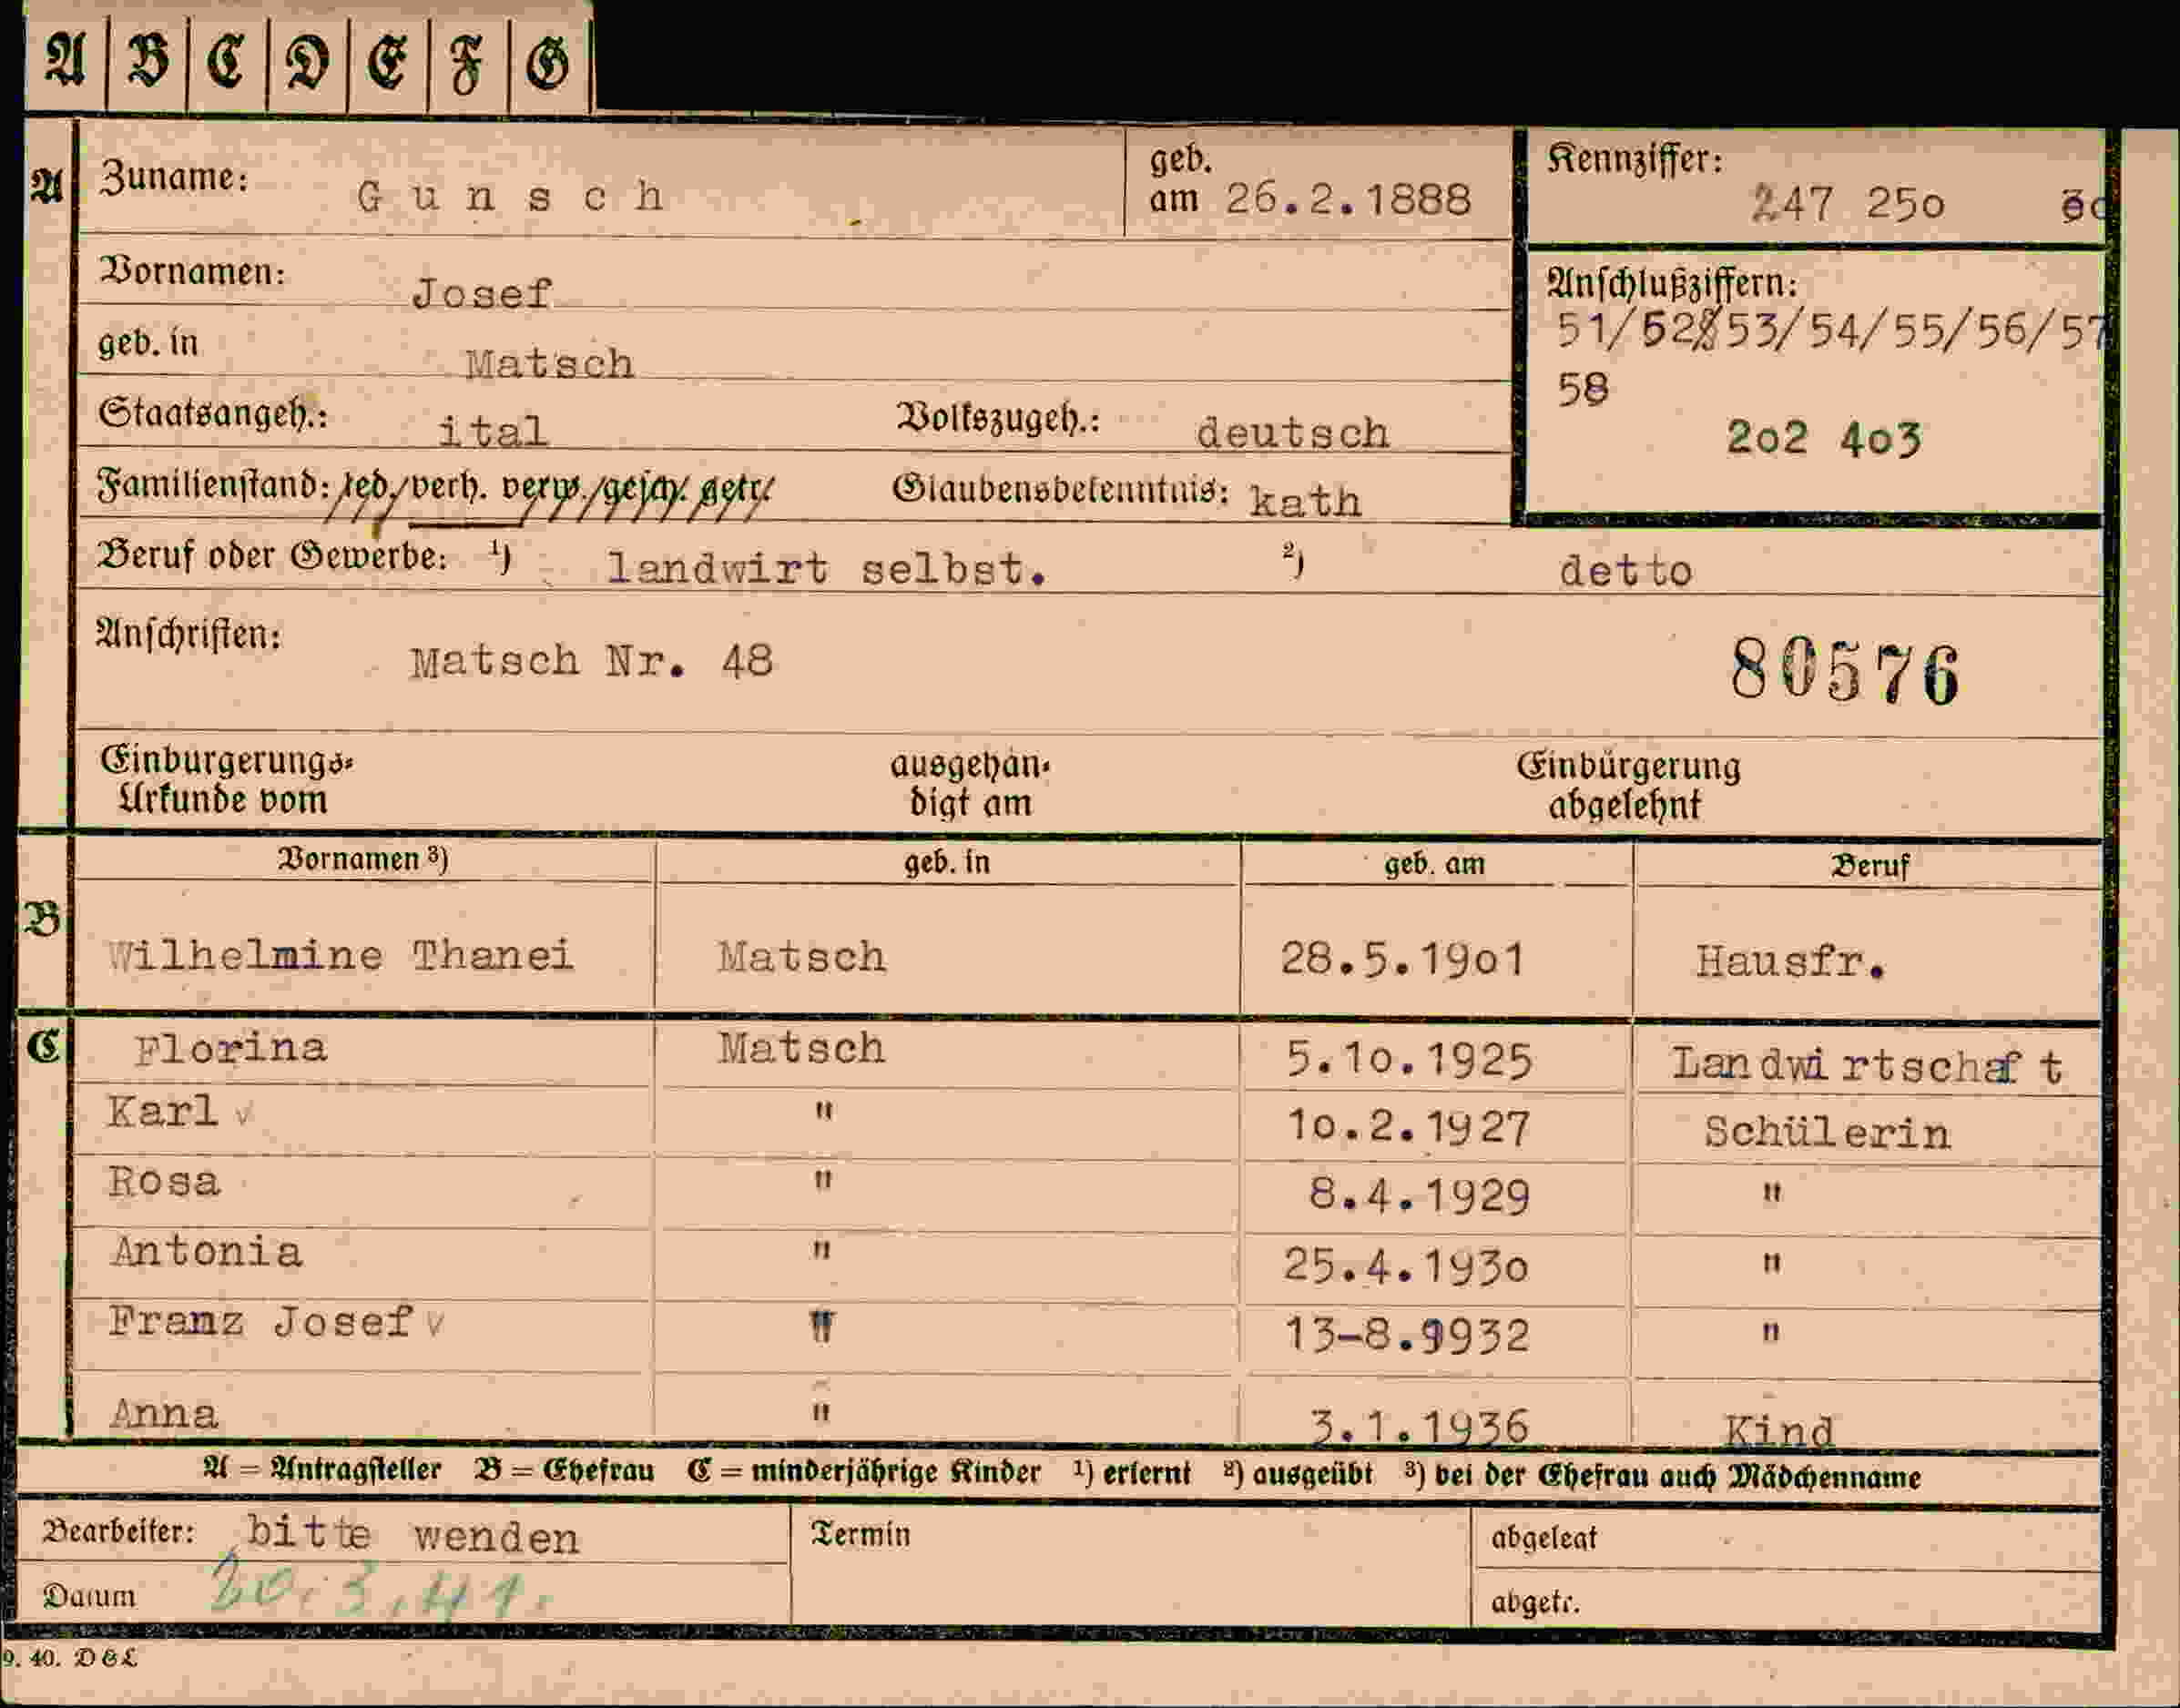 A B C D E F G
A Zuname: Gunsch geb. am 26.2.1888 Kennziffer: 247 250
Vornamen: Josef Anschlußziffern:
51/52/53/54/55/56/57
geb. in Matsch 58
Staatsangeh.: ital Volkszugeh.: deutsch 202 403
Familienstand: led./verh. verw./gesch. getr. Glaubensbekenntnis: kath
Beruf oder Gewerbe: 1) landwirt selbst. 2) detto
Anschriften: Matsch Nr. 48 80576
Einbürgerungs-Urkunde vom ausgehän-digt am Einbürgerung abgelehnt
Vornamen 3) geb. in geb. am Beruf
B Wilhelmine Thanei Matsch 28.5.1901 Hausfr.
C Florina Matsch 5.10.1925 Landwirtschaft
Karl v " 10.2.1927 Schülerin
Rosa " 8.4.1929 "
Antonia " 25.4.1930 "
Franz Josef v " 13-8.9932 "
Anna " 3.1.1936 Kind
A = Antragsteller B = Ehefrau C = minderjährige Kinder 1) erlernt 2) ausgeübt 3) bei der Ehefrau auch Mädchenname
Bearbeiter: bitte wenden Termin abgelegt
Datum 20.3.41. abgetr.
9. 40. D&L